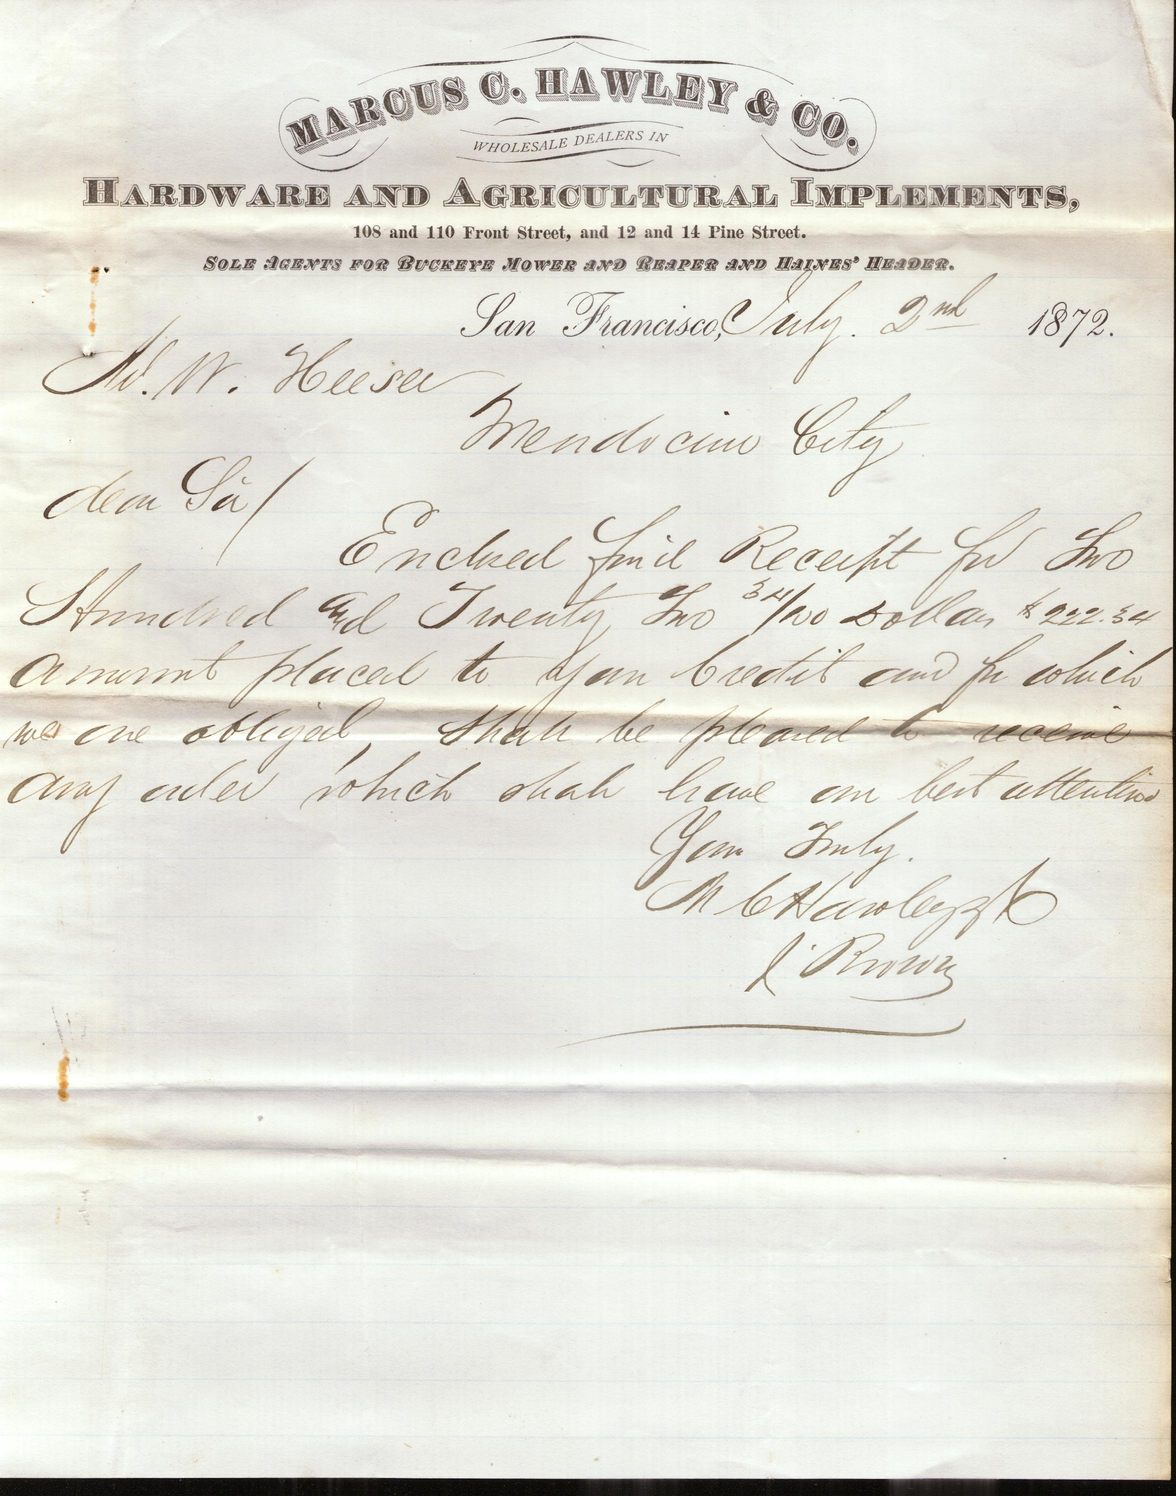 MARCUS C. HAWLEY & CO.
WHOLESALE DEALERS IN
HARDWARE AND AGRICULTURAL IMPLEMENTS,
108 and 110 Front Street, and 12 and 14 Pine Street.
SOLE AGENTS FOR BUCKEYE MOWER AND REAPER AND HAINES' HEADER.
San Francisco, July. 2nd 1872.
W. Heeser
Mendocino City
dear Sir/
Enclosed find Receipt for Two
Hundred and Twenty Two 34/100 Dollars $222.34
amount placed to your Credit and for which
we are obliged, Shall be pleased to receive
any order which shall have our best attention
Yours Truly.
M C Hawley & Co
J. Brown